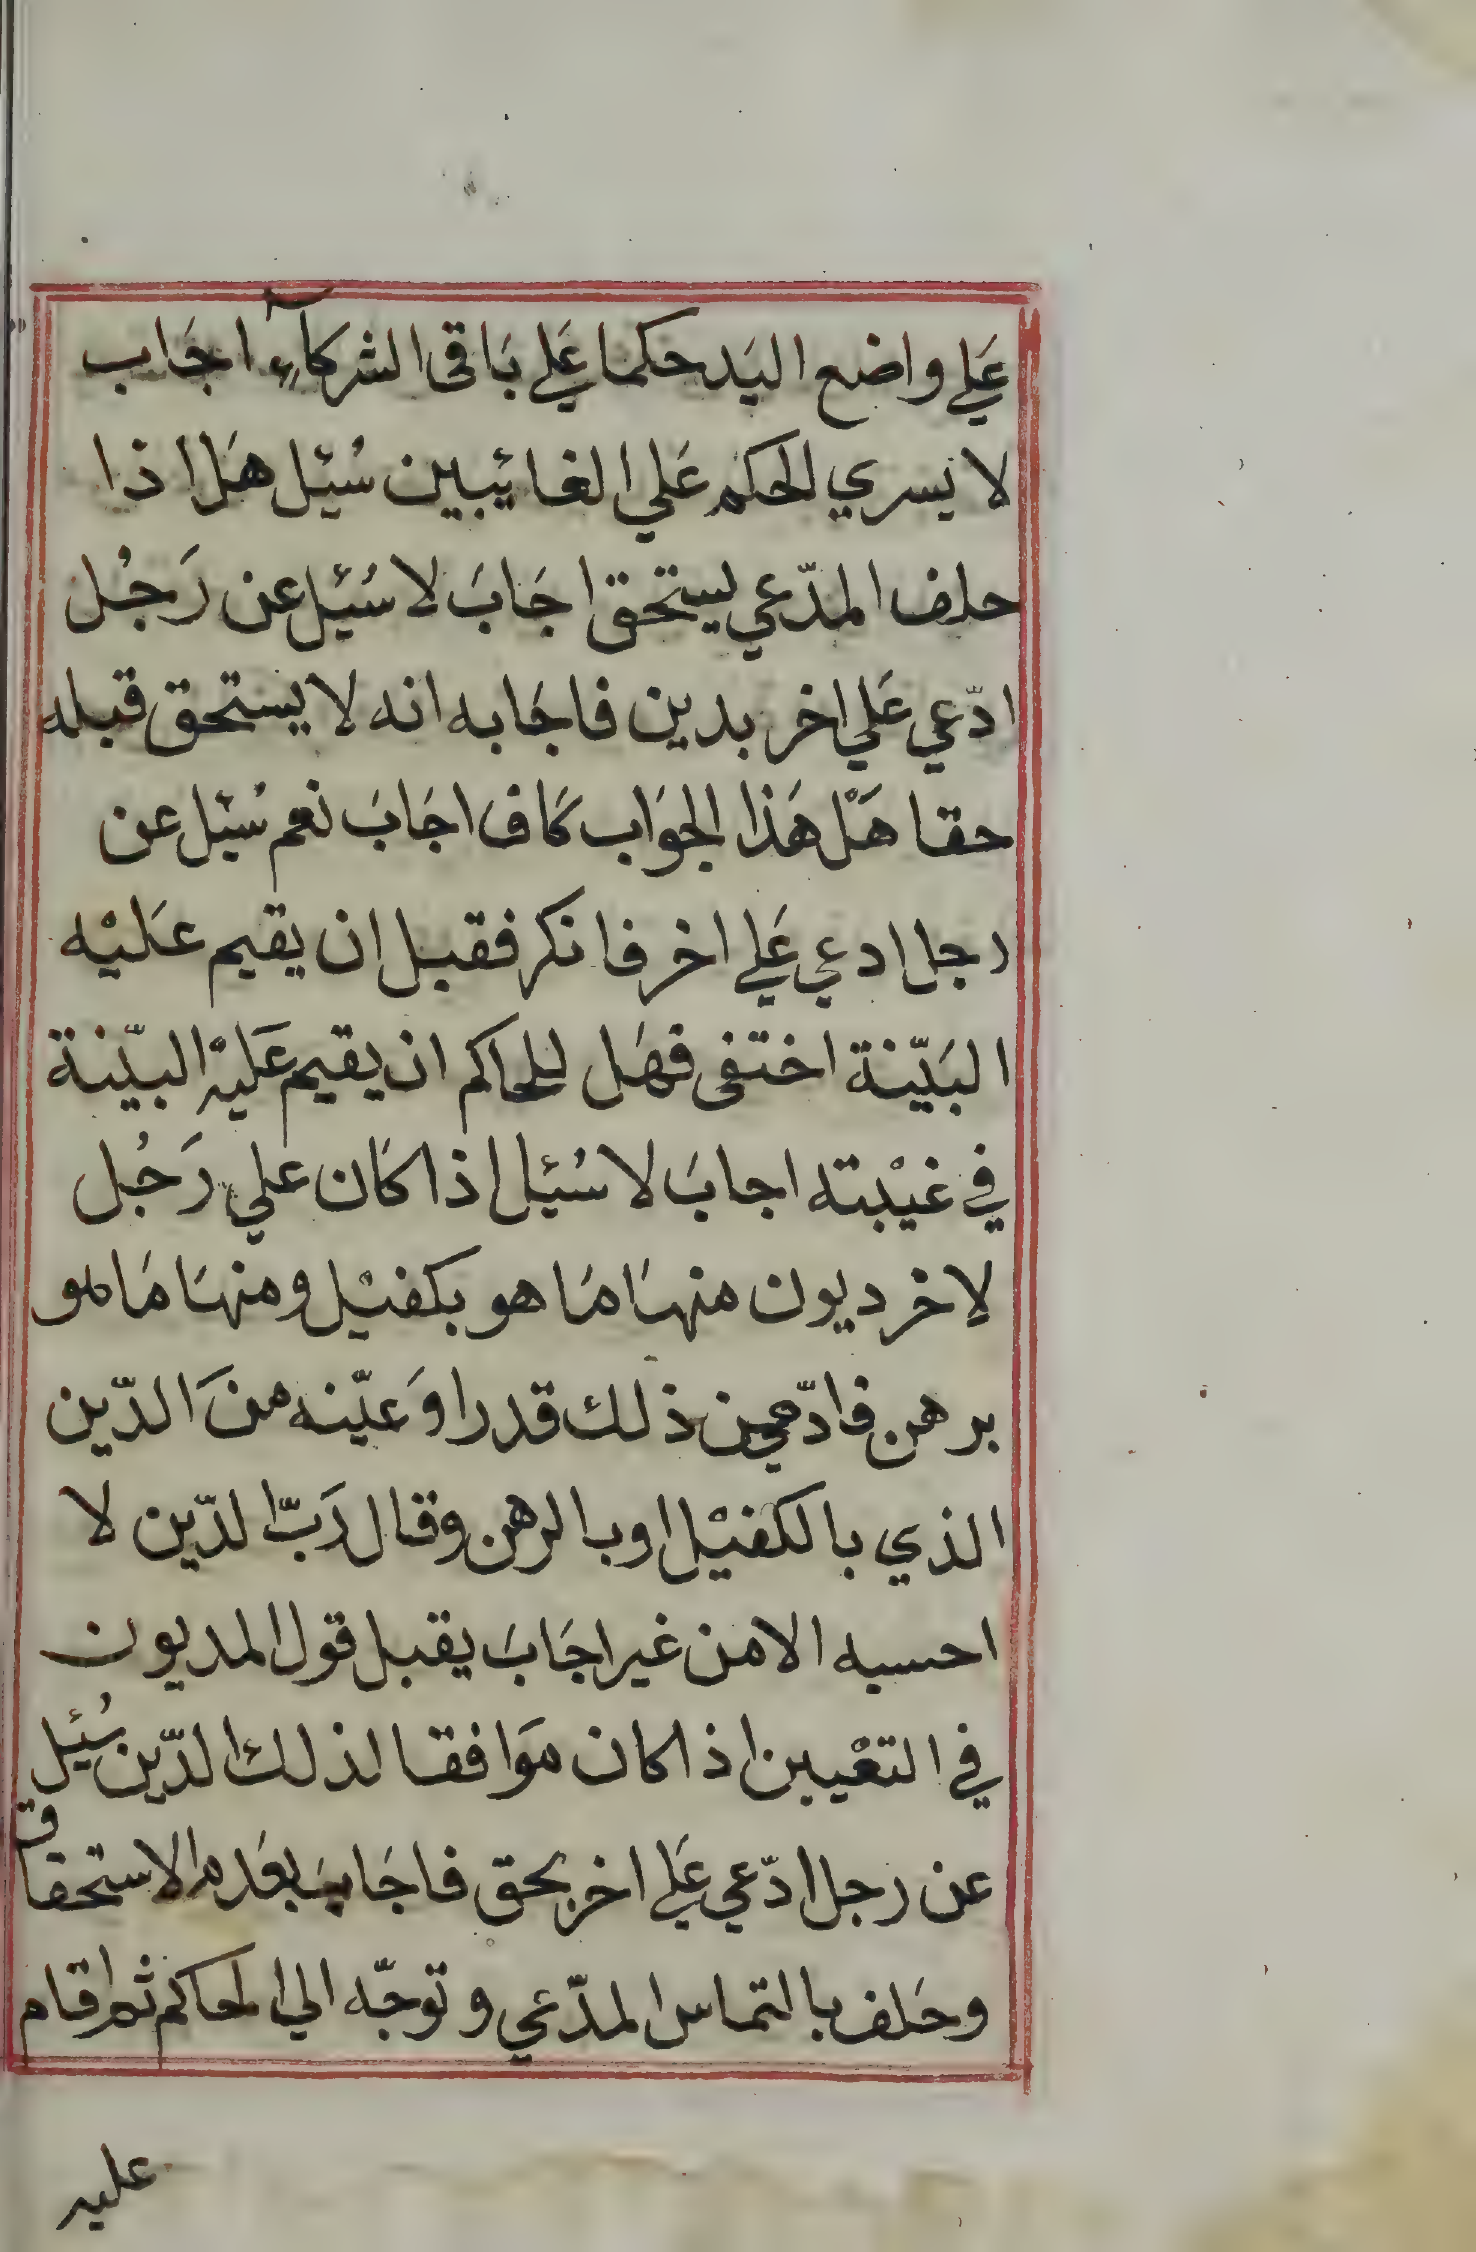 عَلي واضع اليَد حكما عَلي بَاقى الشركآء اجَاب
لا يسري الحكم عَلي الغائيبين سُئيل هَل اذا
حلف المدّعي يستحق اجَابَ لا سُئيل عن رَجُل
ادّعي عَلي اخر بدين فاجَابه انه لا يستحق قبله
حقا هَلْ هَذا الجوَاب كَاف اجَابَ نعم سُئيل عن
رجل ادعي عَلي اخر فانكر فقبل ان يقيم عَليْه
البَيّنة اختفى فهَل للحاكم ان يقيم عَليْه البيّنة
في غيْبته اجابَ لا سُئيل اذا كَان علي رَجُل
لاِخر ديون منهَا مَا هو بكفيْل ومنهَا مَا هو
برهن فادّعي من ذلك قدرا وَعيّنه منَ الدّين
الذي بالكفيْل او بالرهن وقال رَبّ الدّين لا
احسبه الا من غير اجَابَ يقبل قول المديون
في التعْيين اذا كان موَافقا لذلك الدّين سُئيل
عن رجل ادّعي عَلي اخر بحق فاجَابَ بعَدم الاستحقاق
وحَلف بالتماس المدّعي وتوجّه الي الحاكم ثم اقام
عليه